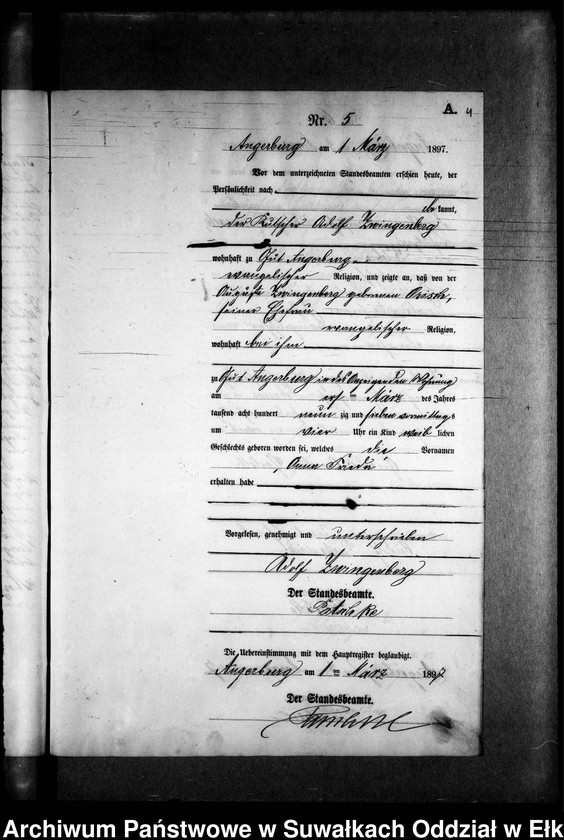 A. 4
Nr. 5
Angerburg am 1 März 1897.
Vor dem unterzeichneten Standesbeamten erschien heute, der
Persönlichkeit nach
be kannt,
der Kutscher Adolf Zwingenberg
wohnhaft zu Gut Angerburg
evangelischer Religion, und zeigte an, daß von der
Auguste Zwingenberg geborenen
seiner Ehefrau
evangelischer Religion,
wohnhaft bei ihm
zu Gut Angerburg in des Anzeigenden Wohnung
am ersten März des Jahres
tausend acht hundert neun zig und sieben vormittags
um vier Uhr ein Kind weib lichen
Geschlechts geboren worden sei, welches die Vornamen
Anna Frieda
erhalten habe
Vorgelesen, genehmigt und unterschrieben
Adolf Zwingenberg
Der Standesbeamte.
Die Uebereinstimmung mit dem Hauptregister beglaubigt.
Angerburg am 1 ten März 1897
Der Standesbeamte.
Archiwum Państwowe w Suwałkach Oddział w Ełk